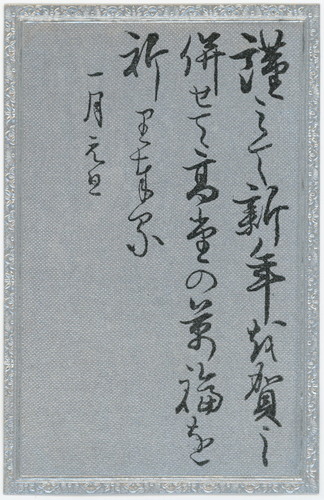 謹みて新年を賀し
併せて高堂の萬福を
祈り奉る
一月元旦